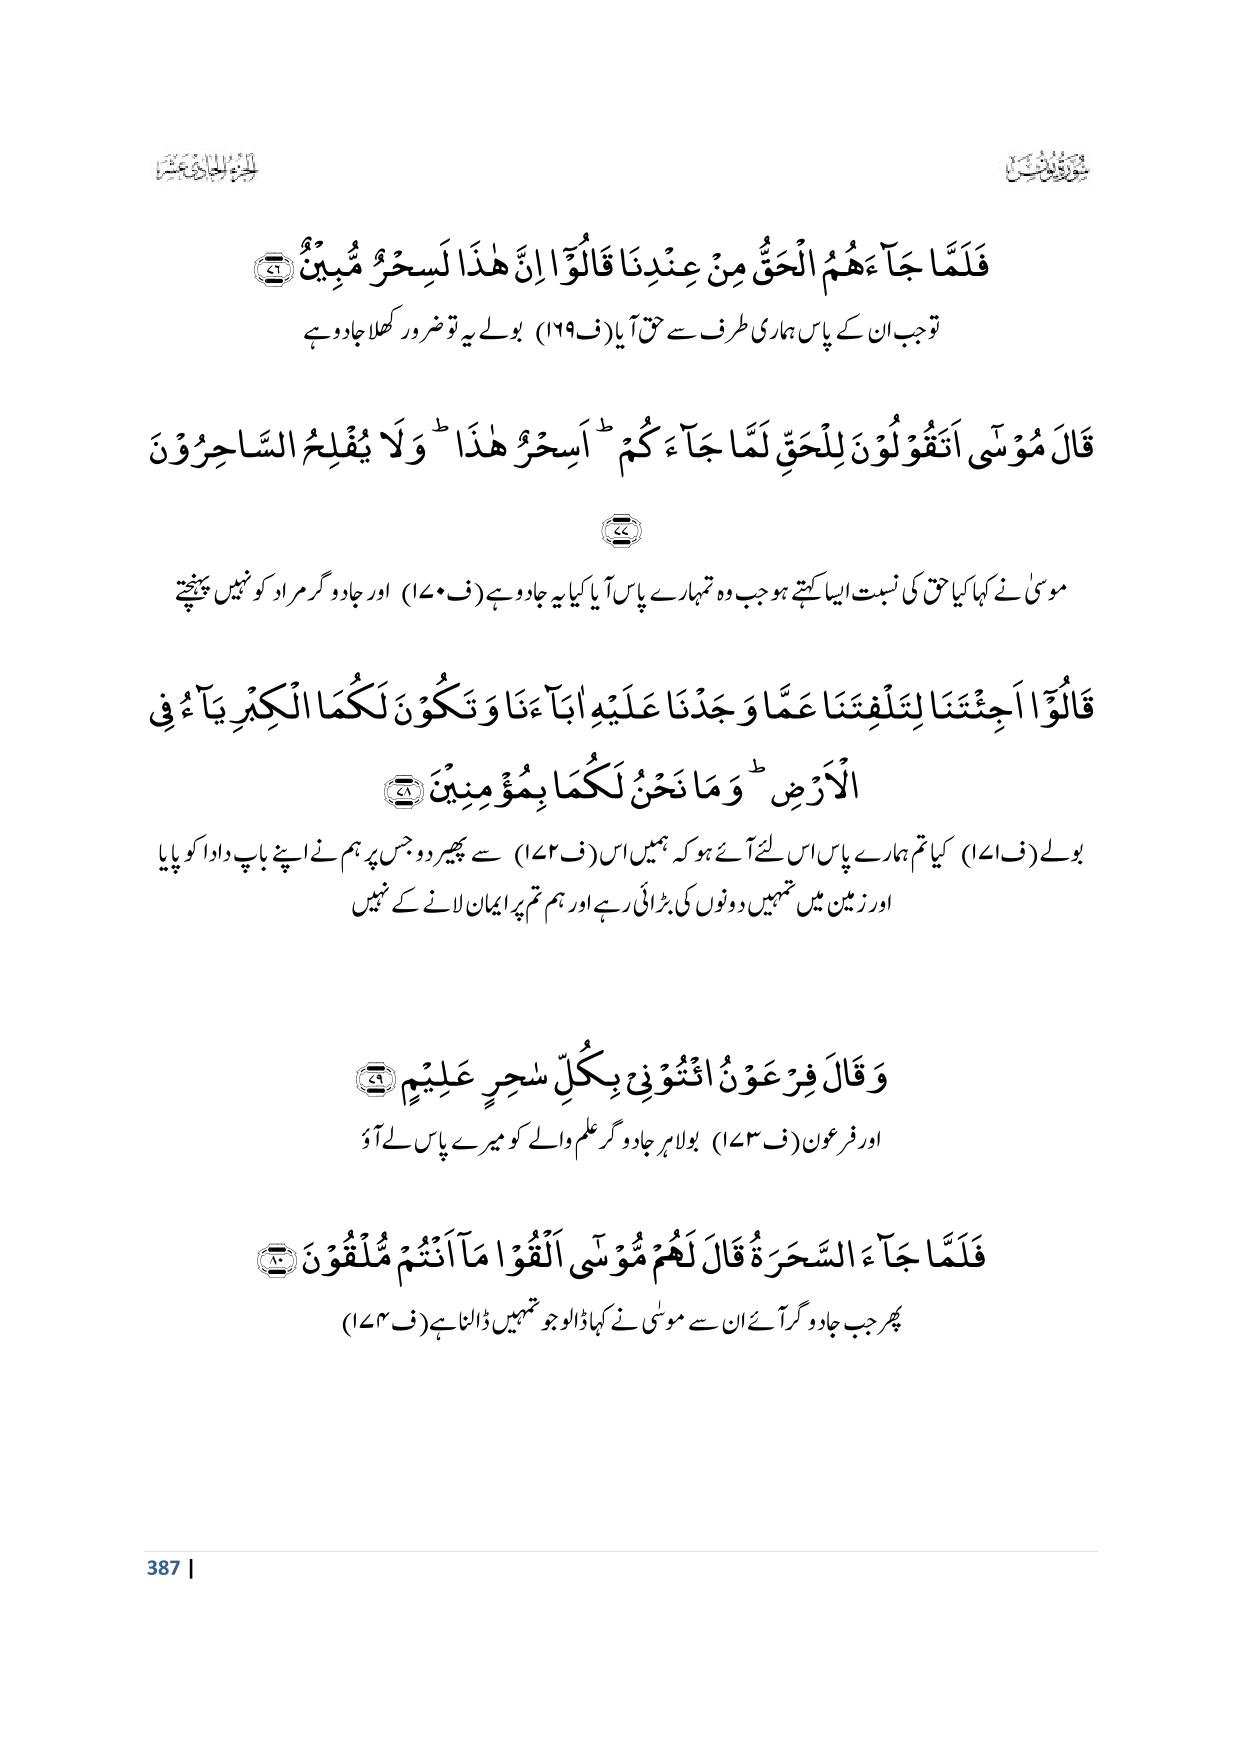 سُوْرَةُ يُوْنُس
الجزء الحادي عشر
فَلَمَّا جَآءَهُمُ الْحَقُّ مِنْ عِنْدِنَا قَالُوْٓا اِنَّ هٰذَا لَسِحْرٌ مُّبِيْنٌ ﴿۷۶﴾
تو جب ان کے پاس ہماری طرف سے حق آیا (ف۱۶۹) بولے یہ تو ضرور کھلا جادو ہے
قَالَ مُوْسٰٓى اَتَقُوْلُوْنَ لِلْحَقِّ لَمَّا جَآءَكُمْ ؕ اَسِحْرٌ هٰذَا ؕ وَلَا يُفْلِحُ السَّاحِرُوْنَ
﴿۷۷﴾
موسیٰ نے کہا کیا حق کی نسبت ایسا کہتے ہو جب وہ تمہارے پاس آیا کیا یہ جادو ہے (ف۱۷۰) اور جادوگر مراد کو نہیں پہنچتے
قَالُوْٓا اَجِئْتَنَا لِتَلْفِتَنَا عَمَّا وَجَدْنَا عَلَيْهِ اٰبَآءَنَا وَتَكُوْنَ لَكُمَا الْكِبْرِيَآءُ فِى
الْاَرْضِ ؕ وَمَا نَحْنُ لَكُمَا بِمُؤْمِنِيْنَ ﴿۷۸﴾
بولے (ف۱۷۱) کیا تم ہمارے پاس اس لئے آئے ہو کہ ہمیں اس (ف۱۷۲) سے پھیر دو جس پر ہم نے اپنے باپ دادا کو پایا
اور زمین میں تمہیں دونوں کی بڑائی رہے اور ہم تم پر ایمان لانے کے نہیں
وَقَالَ فِرْعَوْنُ ائْتُوْنِىْ بِكُلِّ سٰحِرٍ عَلِيْمٍ ﴿۷۹﴾
اور فرعون (ف۱۷۳) بولا ہر جادوگر علم والے کو میرے پاس لے آؤ
فَلَمَّا جَآءَ السَّحَرَةُ قَالَ لَهُمْ مُّوْسٰٓى اَلْقُوْا مَآ اَنْتُمْ مُّلْقُوْنَ ﴿۸۰﴾
پھر جب جادوگر آئے ان سے موسٰی نے کہا ڈالو جو تمہیں ڈالنا ہے (ف۱۷۴)
387 |